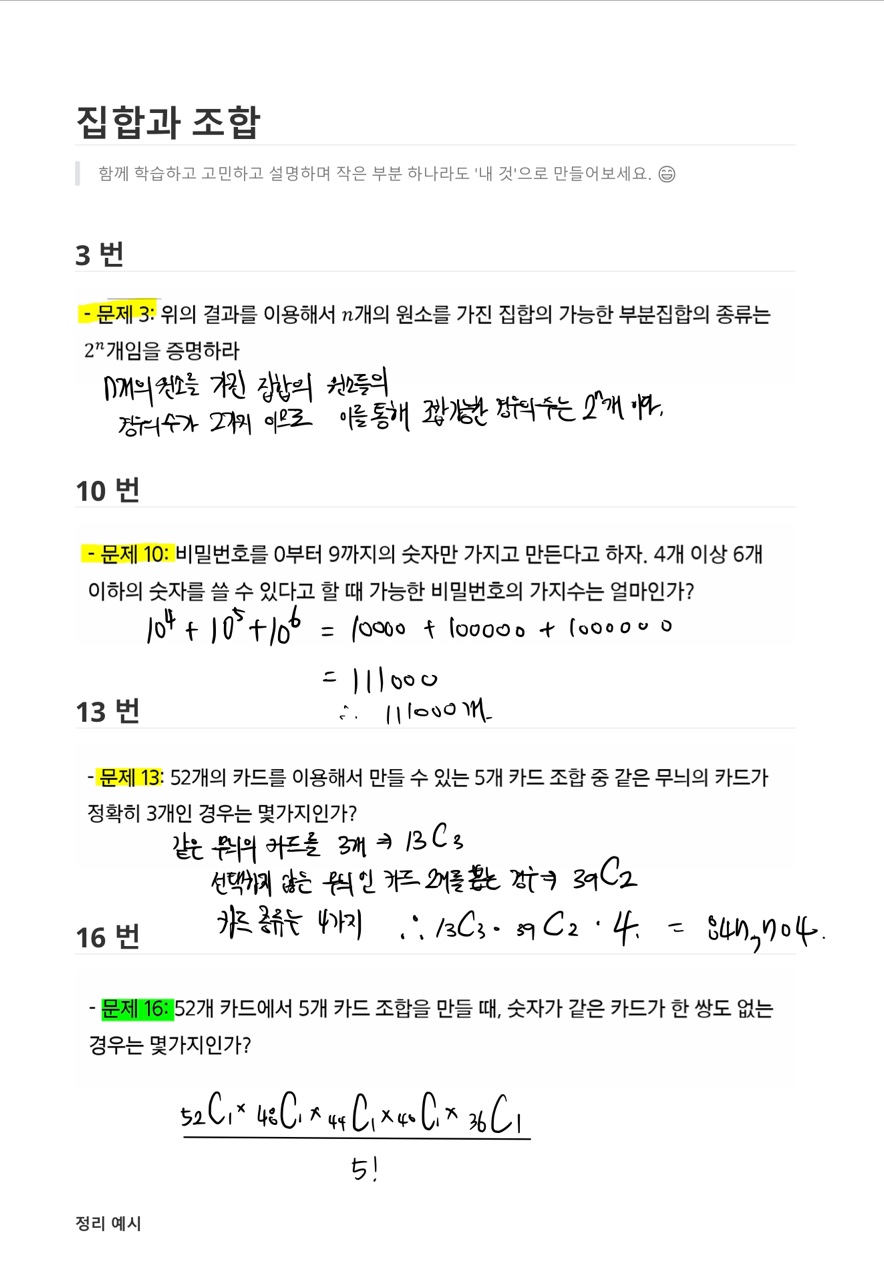 집합과 조합
함께 학습하고 고민하고 설명하며 작은 부분 하나라도 '내 것'으로 만들어보세요. 😄
3 번
- 문제 3: 위의 결과를 이용해서 n개의 원소를 가진 집합의 가능한 부분집합의 종류는
2ⁿ개임을 증명하라
n개의 원소를 가진 집합의 원소들의
경우의 수가 2가지 이므로 이를 통해 조합 가능한 경우의 수는 2ⁿ개 이다.
10 번
- 문제 10: 비밀번호를 0부터 9까지의 숫자만 가지고 만든다고 하자. 4개 이상 6개
이하의 숫자를 쓸 수 있다고 할 때 가능한 비밀번호의 가지수는 얼마인가?
10⁴ + 10⁵ + 10⁶ = 10000 + 100000 + 1000000
= 111000
∴ 111000개.
13 번
- 문제 13: 52개의 카드를 이용해서 만들 수 있는 5개 카드 조합 중 같은 무늬의 카드가
정확히 3개인 경우는 몇가지인가?
같은 무늬의 카드를 3개 ⇒ 13C3
선택하지 않은 무늬인 카드 2개를 뽑는 경우 ⇒ 39C2
카드 종류는 4가지 ∴ 13C3 · 39C2 · 4. = 847,704.
16 번
- 문제 16: 52개 카드에서 5개 카드 조합을 만들 때, 숫자가 같은 카드가 한 쌍도 없는
경우는 몇가지인가?
52C1 × 48C1 × 44C1 × 40C1 × 36C1
5!
정리 예시